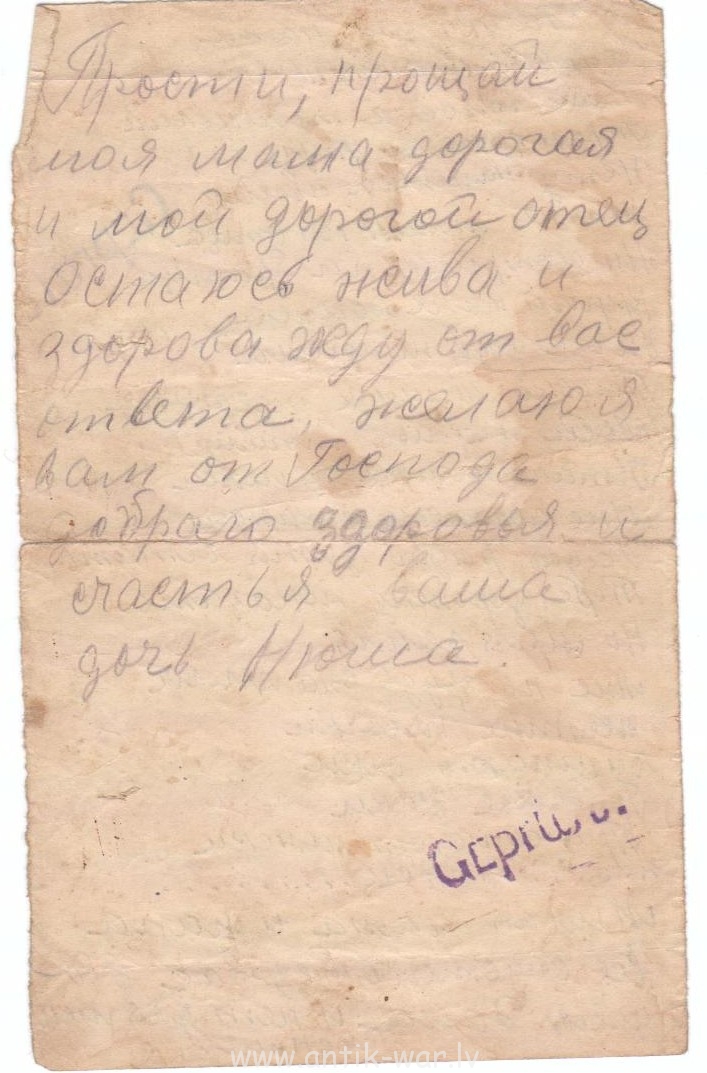 Прости, прощай
моя мама дорогая
и мой дорогой отец
Остаюсь жива и
здорова жду от вас
ответа, желаю я
вам от Господа
добраго здоровья и
счастья ваша
дочь Нюша.
www.antik-war.lv